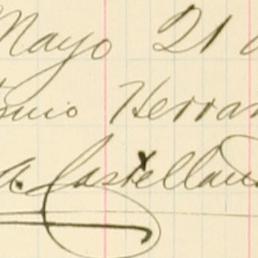 Mayo 21 d
onio Herran
a. Castellan